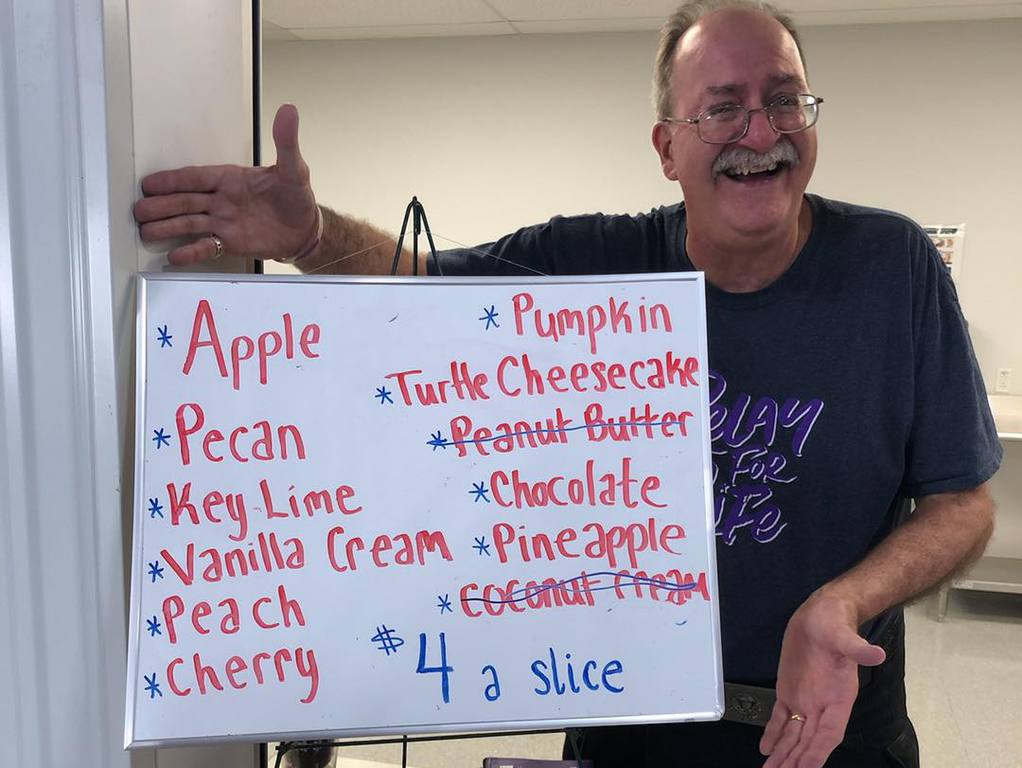 * Apple
* Pecan
* Key Lime
* Vanilla Cream
* Peach
* Cherry
* Pumpkin
* Turtle Cheesecake
* Peanut Butter
* Chocolate
* Pineapple
* Coconut Cream
$4 a slice
RELAY
FOR
LIFE